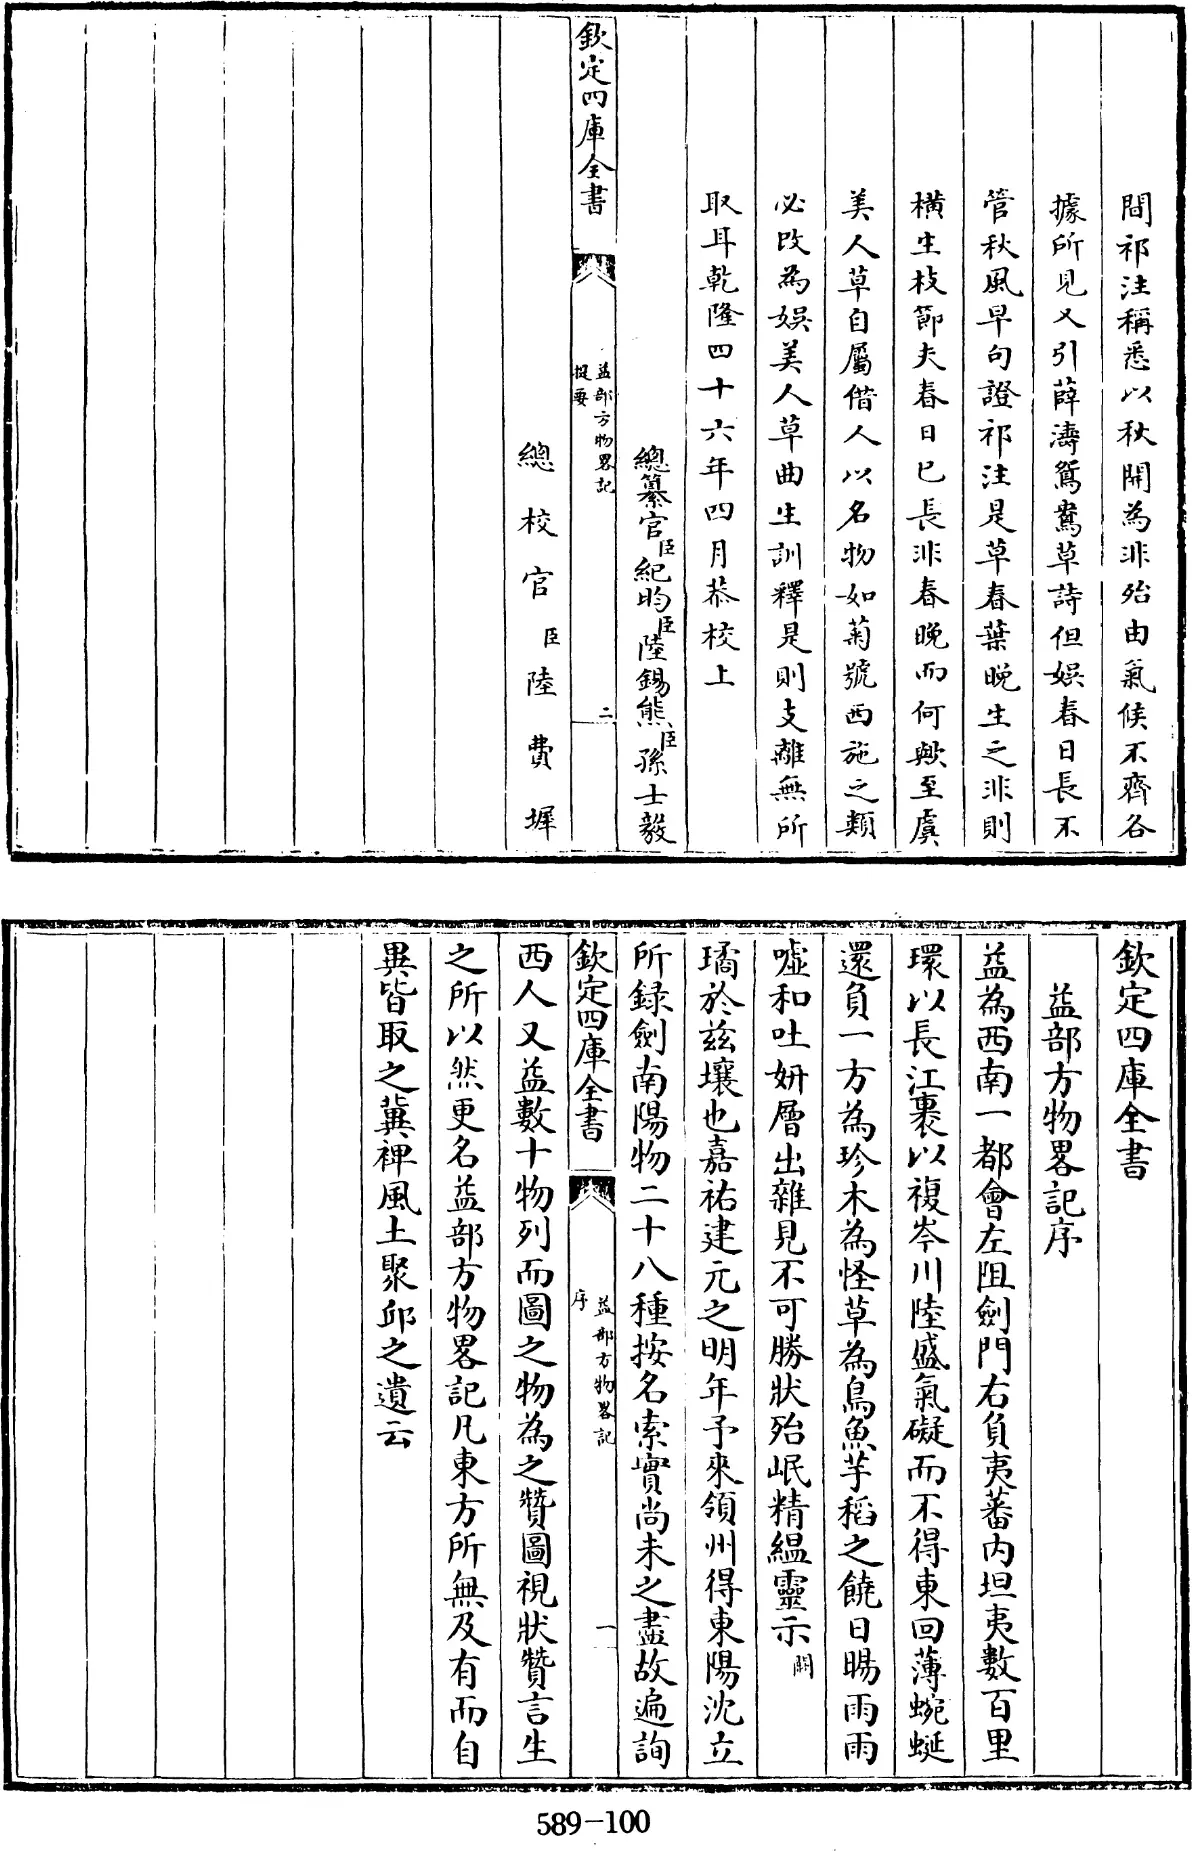 間祁注稱悉以秋開為非殆由氣候不齊各
據所見又引薛濤鴛鴦草詩但娱春日長不
管秋風早句證祁注是草春葉晚生之非則
橫生枝節夫春日已長非春晚而何歟至虞
美人草自屬借人以名物如菊號西施之類
必改為娱美人草曲生訓釋是則支離無所
取耳乾隆四十六年四月恭校上
總纂官臣紀昀臣陸錫熊臣孫士毅
欽定四庫全書
益部方物畧記
提要
二
總校官臣陸費墀
欽定四庫全書
益部方物畧記序
益為西南一都會左阻劍門右負夷蕃内坦夷數百里
環以長江裹以複岑川陸盛氣礙而不得東回薄蜿蜒
還負一方為珍木為怪草為鳥魚芋稻之饒日暘雨雨
嘘和吐妍層出雜見不可勝狀殆岷精緼靈示闕
璚於兹壤也嘉祐建元之明年予來領州得東陽沈立
所録劍南陽物二十八種按名索實尚未之盡故遍詢
欽定四庫全書
益部方物畧記
序
一
西人又益數十物列而圖之物為之贊圖視狀贊言生
之所以然更名益部方物畧記凡東方所無及有而自
異皆取之冀裨風土聚邱之遺云
589-100